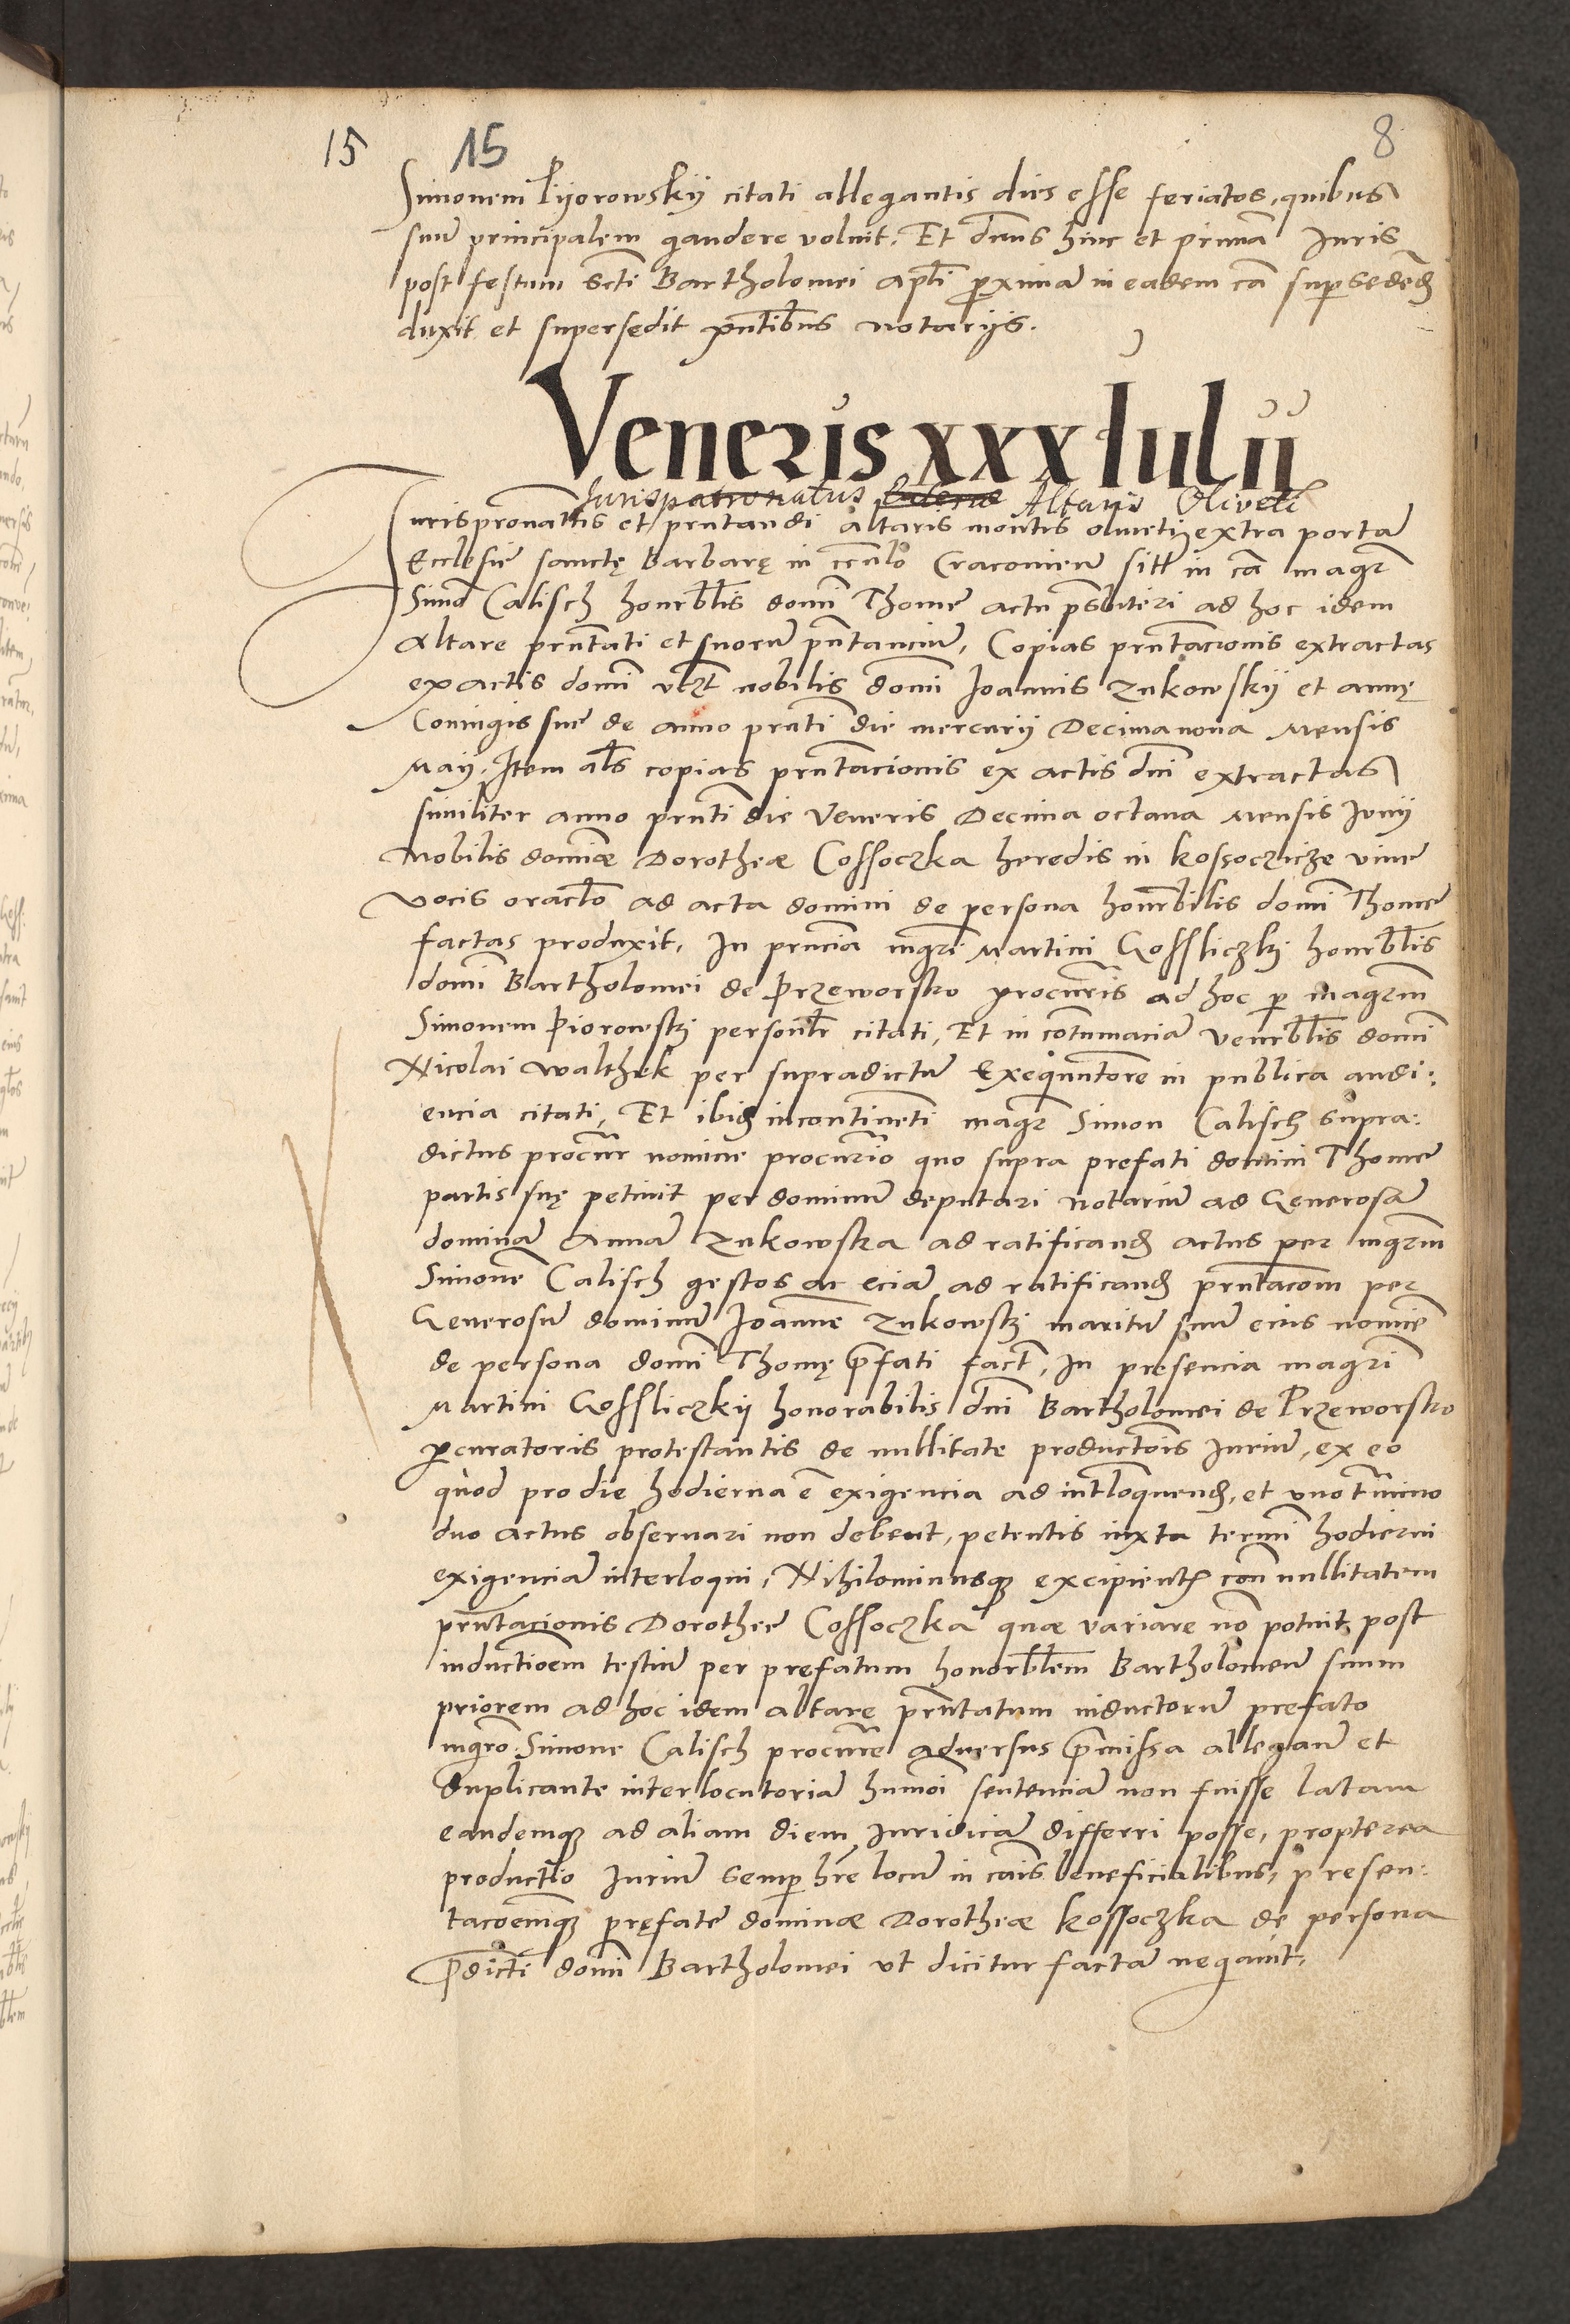 15 15 8
Simonem Pijorowskij citati allegantis dies esse feriatos, quibus
suu principalem gaudere voluit. Et dnus hinc et prima Juris
post festum scti Bartholomei apli proxima in eadem ca supersedend
duxit et supersedit pntibus notarijs.
Veneris xxx Iulij
Jurispatronatus Altaris Oliveti
Jurispronattis et prntandi altaris montis oliueti extra porta
Ecclesie sanctę Barbarę in Cracouien sitt in ca magr
Simo Calisch honrblis domi Thome actu psbiteri ad hoc idem
Altare prntati et suoru pntanciu, Copias prntacionis extractas
ex actis domi vzt nobilis domi Joannis Zukowskij et annę
Coniugis sue de anno prnti die mercurij Decimanona Mensis
Maij, Item als copias prntacionis ex actis dni extractas
similiter anno prnti die Veneris Decima octaua Mensis Junij
Nobilis dominae Dorotheae Cossoczka heredis in kossoczicze viue
vocis oraclo ad acta domini de persona honrabilis domi Thome
factas produxit, In prncia mgri Martini Gossliczky honrblis
domi Bartholomei de Przeworsko procuris ad hoc p magrm
Simonem Piorowski personlr citati, Et in contumacia venrblis domi
Nicolai Walthek per supradictu Exequutore in publica audi:
encia citati, Et ibid incontinenti magr Simon Calisch supra:
dictus procur nomine procurio quo supra prefati domini Thome
partis suę petiuit per dominu deputari notariu ad Generosa
domina Anna Zukowska ad ratificand actus per mgrm
Simone Calisch gestos ac ecia ad ratificand prntacom per
Generosu dominu Joanne Zukowski maritu suu eius nomie
de persona domi Thomę prefati fact, In presencia magri
Martini Gossliczkij honorabilis dni Bartholomei de Przeworsko
procuratoris protestantis de nullitate productois Juriu, ex eo
quod pro die hodierna e exigencia ad intloquend, et vno tmino
duo actus obseruari non debent, petentis iuxta termi hodierni
exigencia interloqui, Nihilominusq excipient con nullitatem
prntacionis Dorothee Cossoczka quae variare no potuit post
inductioem testiu per pręfatum honorblem Bartholomeu suum
priorem ad hoc idem altare prntatum inductoru prefato
mgro Simone Calisch procure aduersus pmissa allegan et
duplicante interlocutoria humoi sentencia non fuisse latam
eandemq ad aliam diem Juridica differri posse, propterea
productio Juriu semp hre locu in cais beneficialibus, presen:
tacoemq pręfate dominae Dorotheae kossoczka de persona
predicti domi Bartholomei vt dicitur facta negauit.